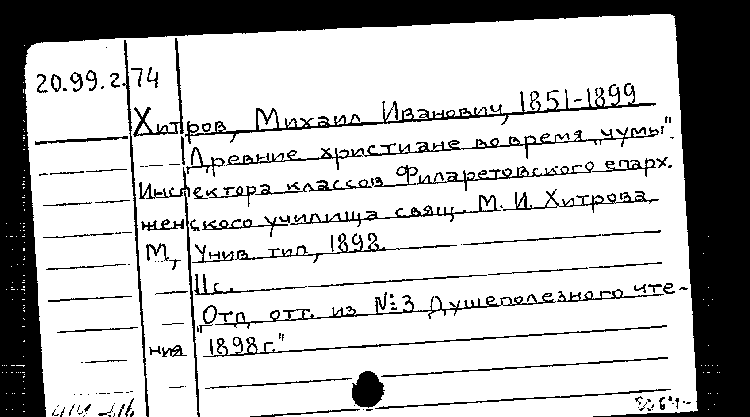 20.99.2.74
Хитров, Михаил Иванович, 1851-1899
Древние христиане во время "чумы".
Инспектора классов Филаретовского епарх.
женского училища свящ. М. И. Хитрова.
М, Унив. тип, 1898.
11с.
"Отд. отт. из №3 Душеполезного чте-
ния 1898г."